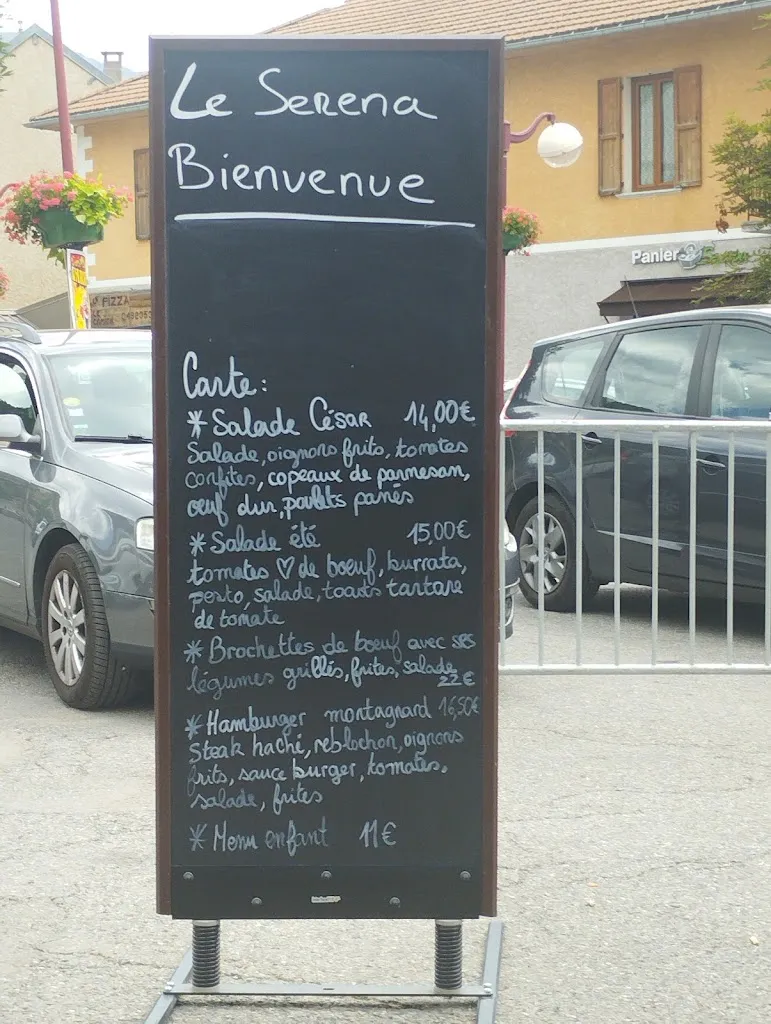 Le Serena
Bienvenue
Carte:
* Salade César 14,00€
Salade, oignons frits, tomates
confites, copeaux de parmesan,
œuf dur, poulets panés
* Salade été 15,00€
tomates ♡ de bœuf, burrata,
pesto, salade, toasts tartare
de tomate
* Brochettes de bœuf avec ses
légumes grillés, frites, salade
22€
* Hamburger montagnard 16,50€
Steak haché, reblochon, oignons
frits, sauce burger, tomates,
salade, frites
* Menu enfant 11€
PIZZA
Panier